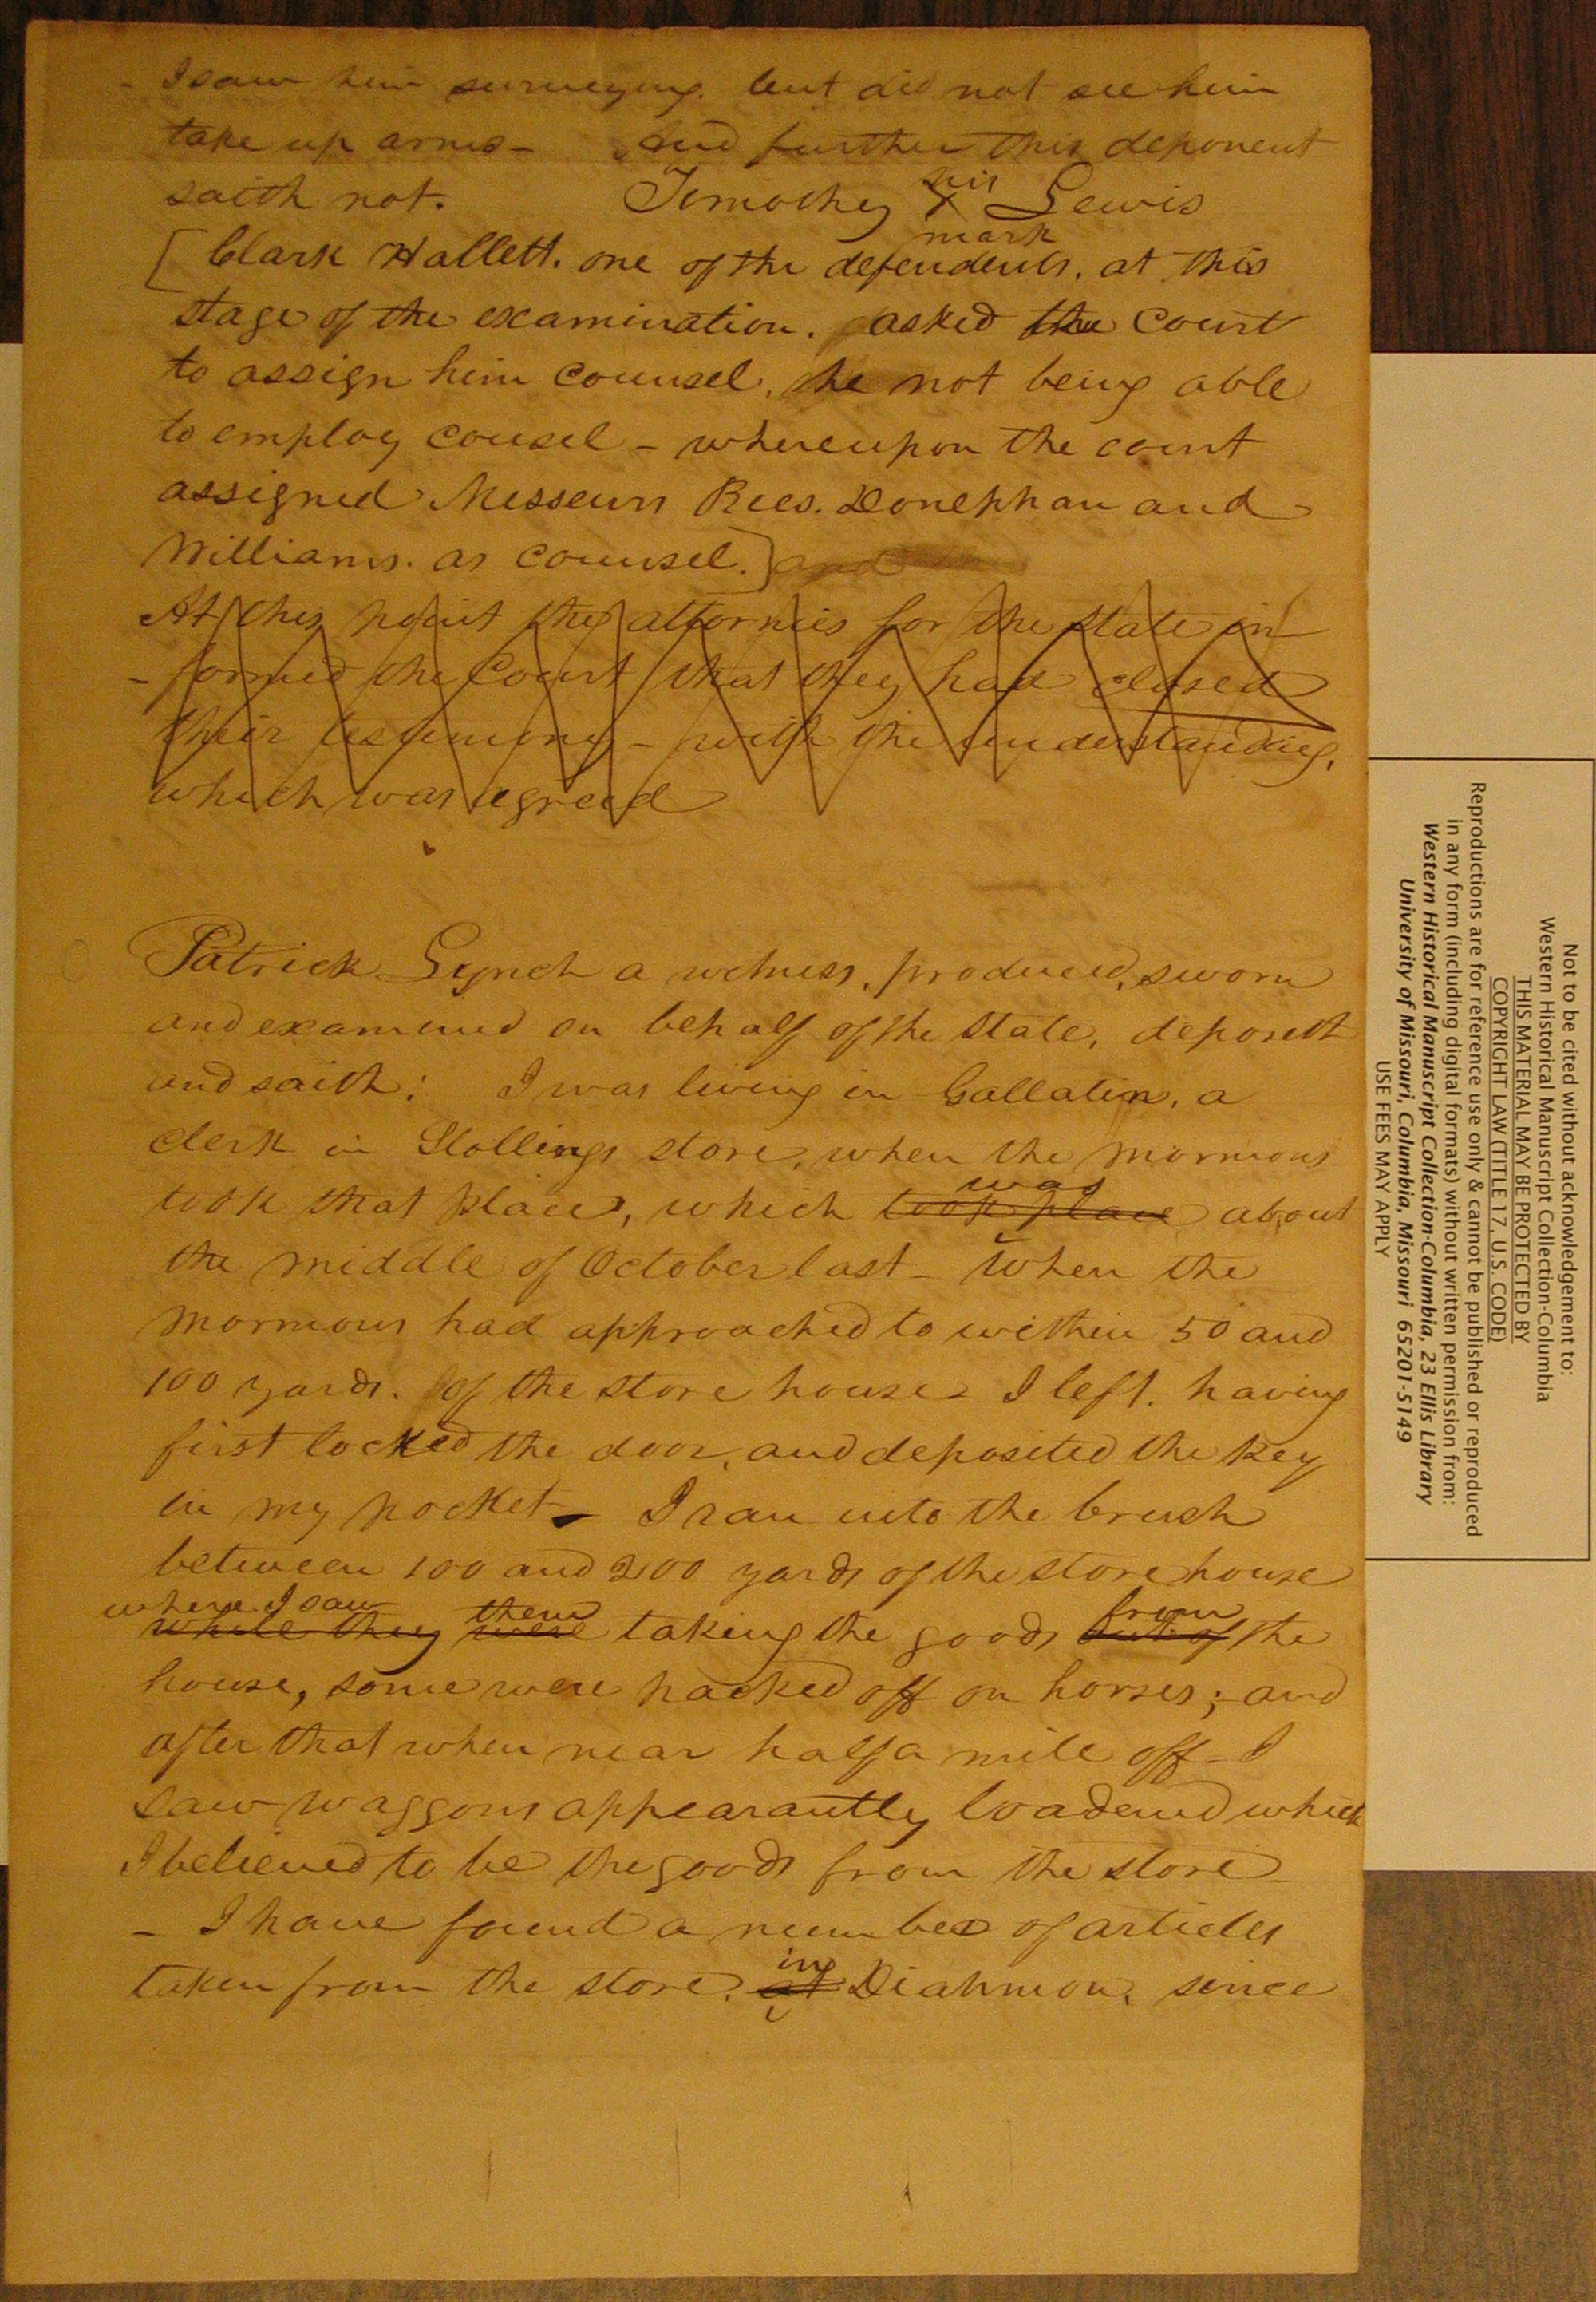 I saw him surveying. but did not see him
take up arms - And further this deponent
saith not. Timothy his X mark Lewis
[Clark Hallett. one of the defendents, at this
stage of the examination. asked the Court
to assign him counsel, he not being able
to employ cousel - whereupon the court
assigned Messeurs Rees. Donephan and
Williams. as counsel.] and
At this point the attornies for the state in
- formed the Court that they had closed
their testimony - with the understanding,
which was agreed
Patrick Lynch a witness, produced, sworn
and examined on behalf of the State, deposeth
and saith: I was living in Gallatin, a
clerk in Stollings store, when the mormons
was
took that place, which took place about
the middle of October last - When the
mormons had approached to within 50 and
100 yards. of the store house - I left. having
first locked the door, and deposited the key
in my pocket - I ran into the brush
between 100 and 200 yards of the store house
where I saw them from
while they were taking the goods out of the
house, some were packed off on horses; and
after that when near half a mile off - I
saw waggons appearantly loadened which
I believed to be the goods from the store -
- I have found a number of articles
in
taken from the store, at Diahmon, since
Not to be cited without acknowledgement to:
Western Historical Manuscript Collection-Columbia
THIS MATERIAL MAY BE PROTECTED BY
COPYRIGHT LAW (TITLE 17, U.S. CODE)
Reproductions are for reference use only & cannot be published or reproduced
in any form (including digital formats) without written permission from:
Western Historical Manuscript Collection-Columbia, 23 Ellis Library
University of Missouri, Columbia, Missouri 65201-5149
USE FEES MAY APPLY